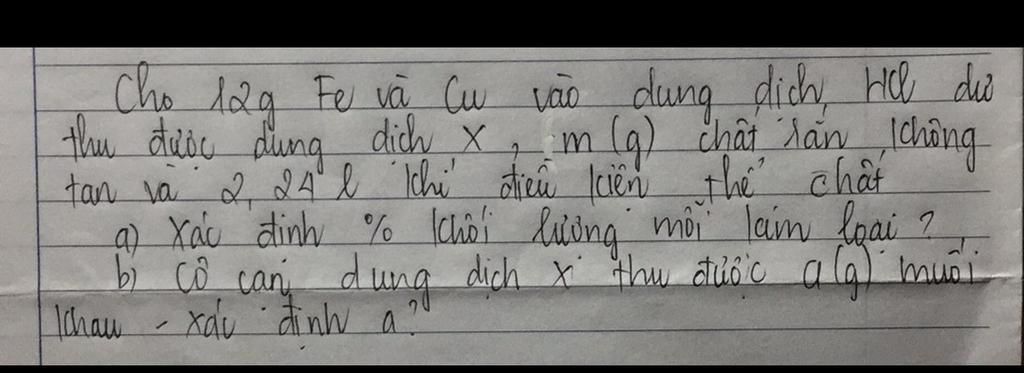 Cho 12g Fe và Cu vào dung dịch HCl dư
thu được dung dịch X, m (g) chất rắn không
tan và 2,24 l khí điều kiện thể chất
a) Xác định % khối lượng mỗi kim loại?
b) Cô cạn dung dịch X thu được a(g) muối
khau - xác định a?